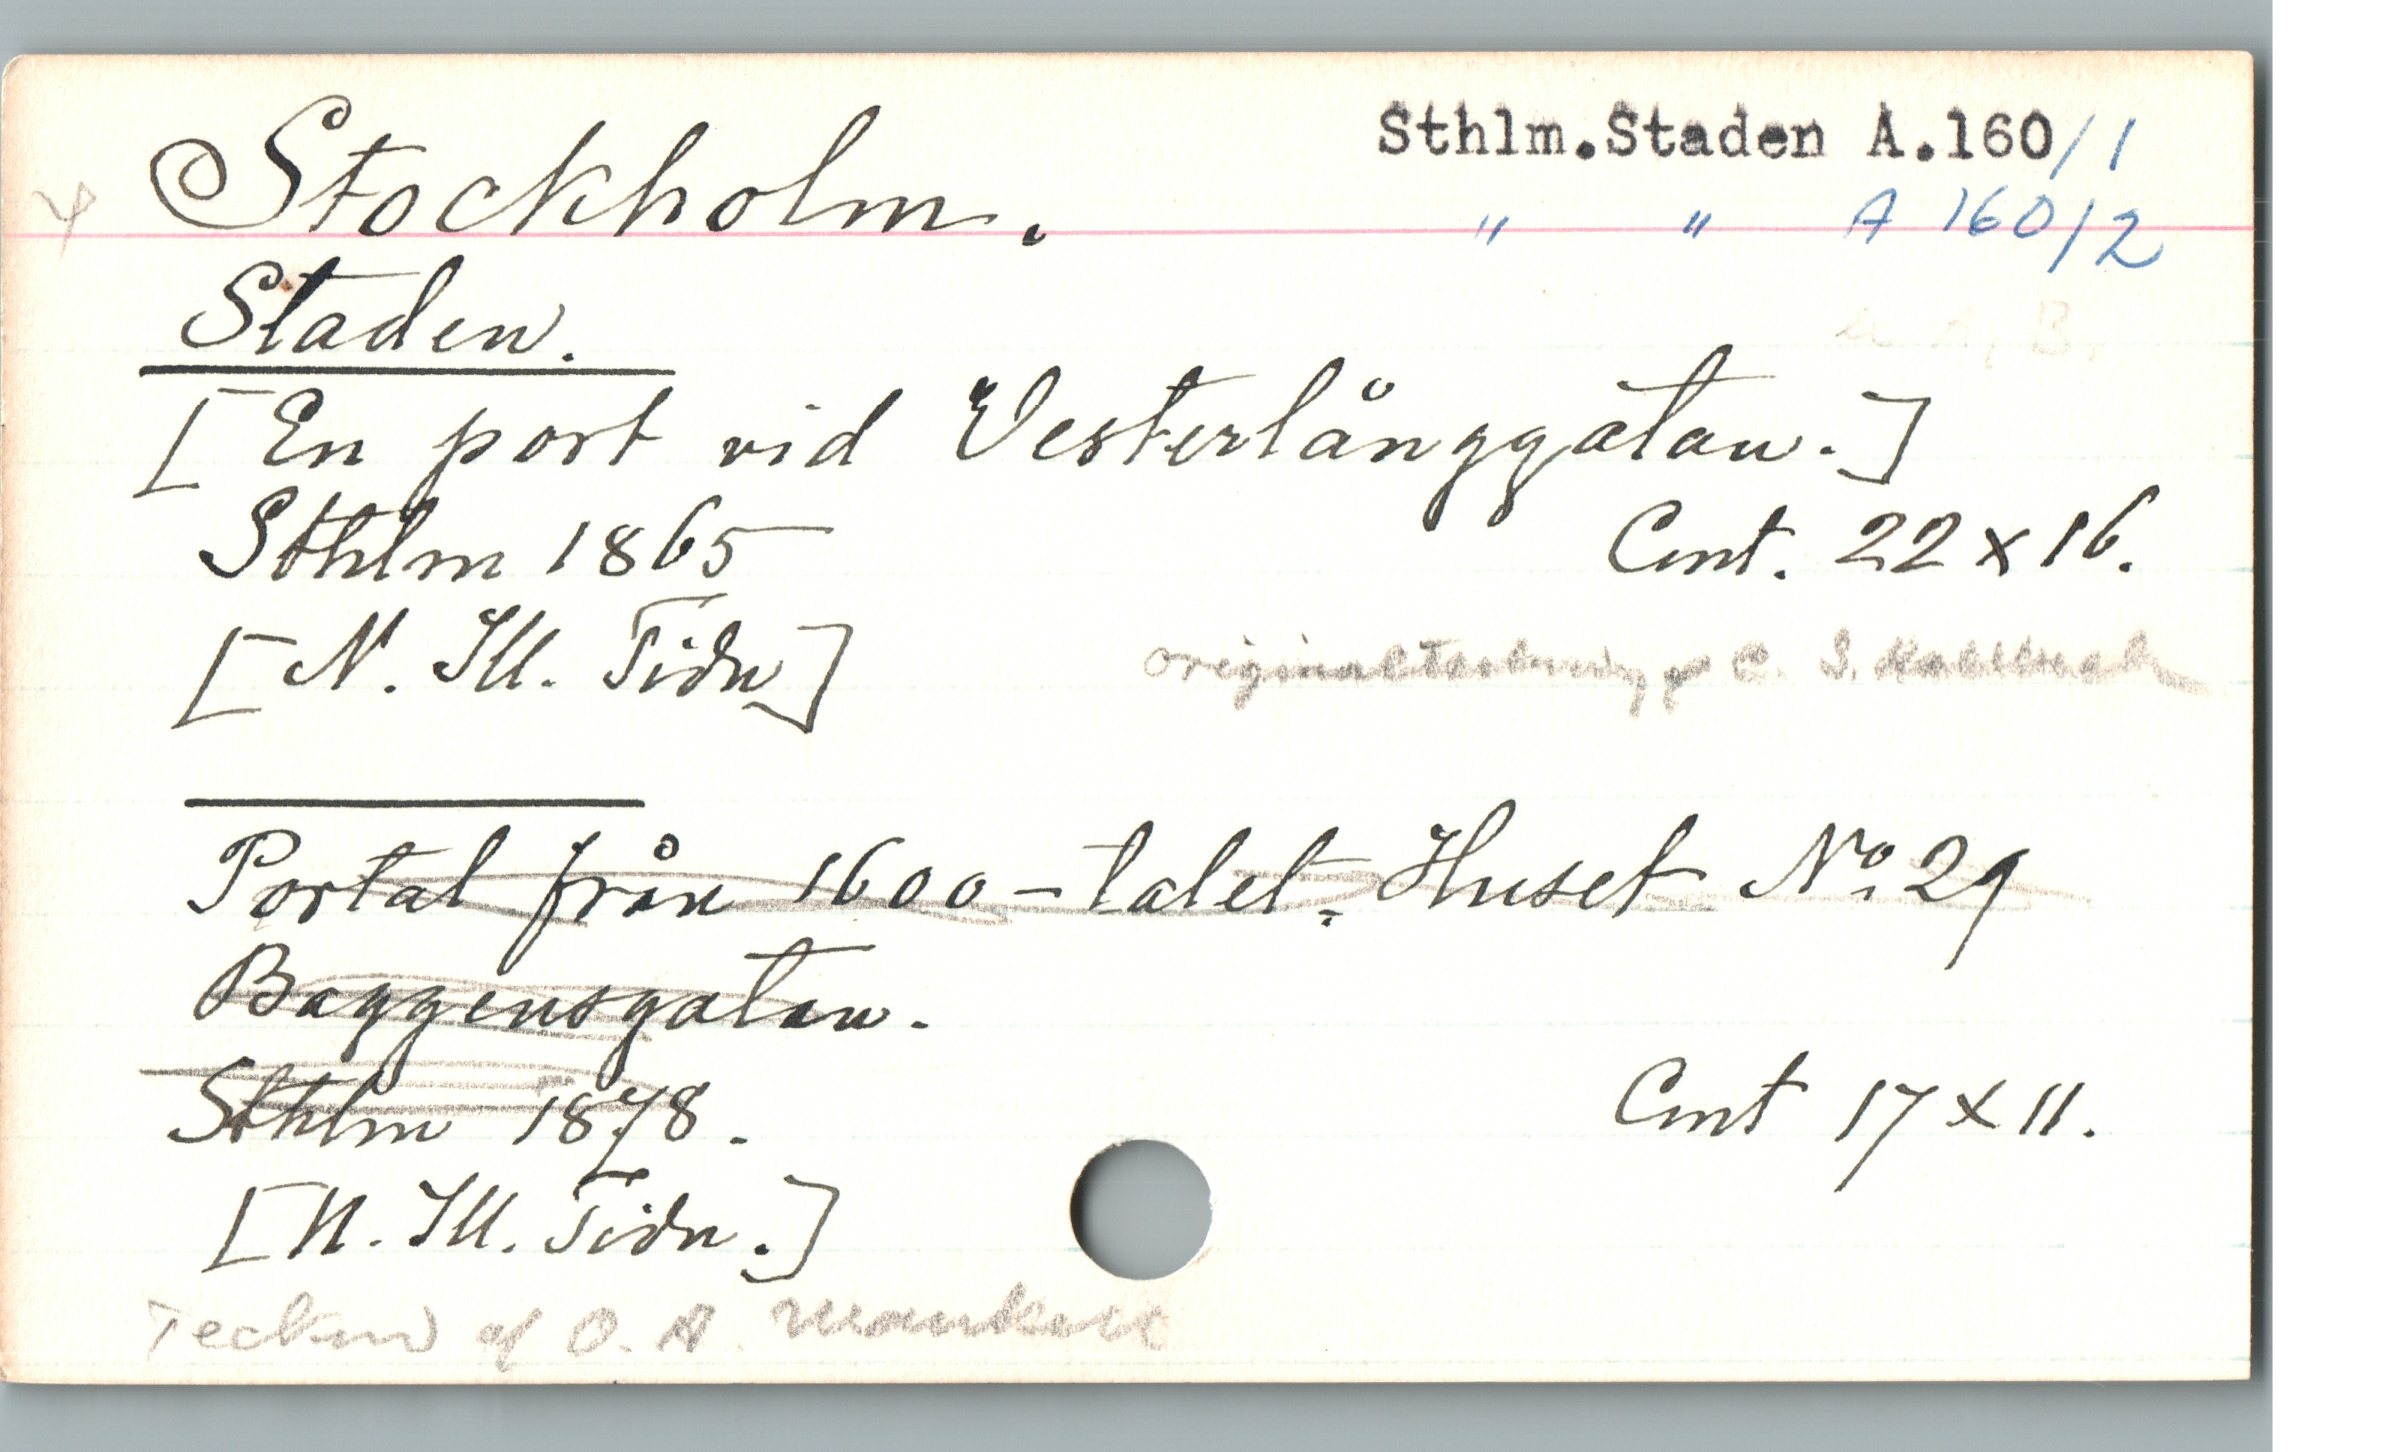 Stockholm. Sthlm.Staden A.160/1
" " A 160/2
Staden. B.
[En port vid Vesterlånggatan.]
Sthlm 1865 Cmt. 22 x 16.
[N. Ill. Tidn] originalteckning af C. S. Hallbeck
Portal från 1600-talet. Huset No. 29
Baggensgatan.
Sthlm 1878. Cmt 17 x 11.
[N. Ill. Tidn.]
Tecknad af O. A. Mankell